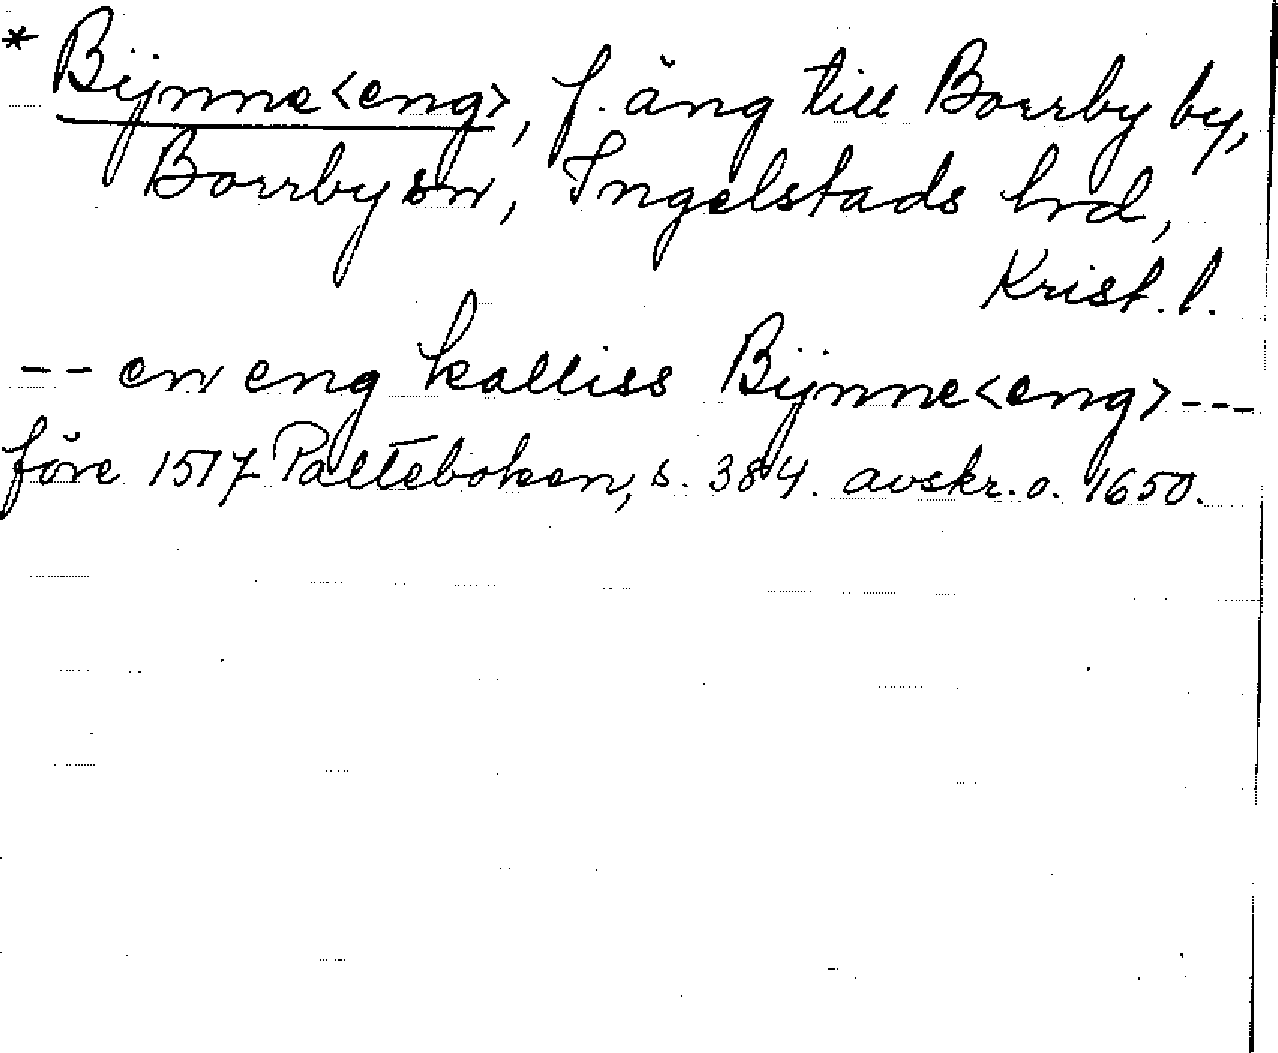 * Bijnne<eng>, f. äng till Borrby by,
Borrby sn, Ingelstads hrd,
Krist. l.
-- en eng kalliss Bijnne<eng>---
före 1517 Palteboken, s. 384. avskr. o. 1650.